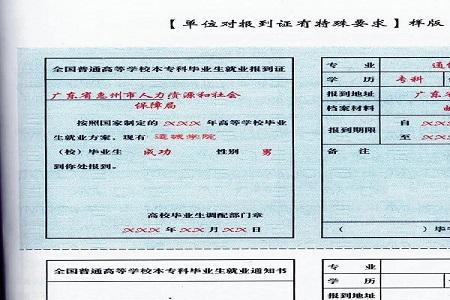 【单位对报到证有特殊要求】样版
全国普通高等学校本专科毕业生就业报到证
广东省惠州市人力资源和社会
保障局
按照国家制定的 ××× 年高等学校毕业
生就业方案，现有
学院
(校) 毕业生 成功 性别 男
到你处报到。
高校毕业生调配部门章
××× 年 ×× 月 ×× 日
专 业 通
学 历 专科
报到地址 广东省
档案材料
报到期限 自 ×××
至 ×××
备 注
( ) 毕
全国普通高等学校本专科毕业生就业通知书
专 业
学 历
报到地址